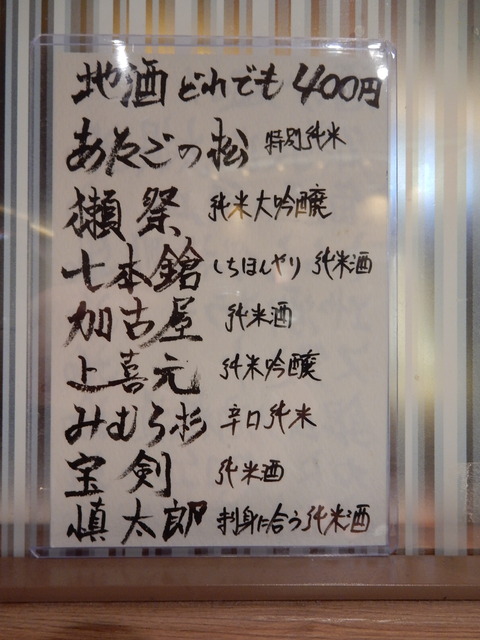 地酒どれでも400円
あたごの松 特別純米
獺祭 純米大吟醸
七本鎗 しちほんやり 純米酒
加古屋 純米酒
上喜元 純米吟醸
みむろ杉 辛口純米
宝剣 純米酒
慎太郎 刺身に合う純米酒